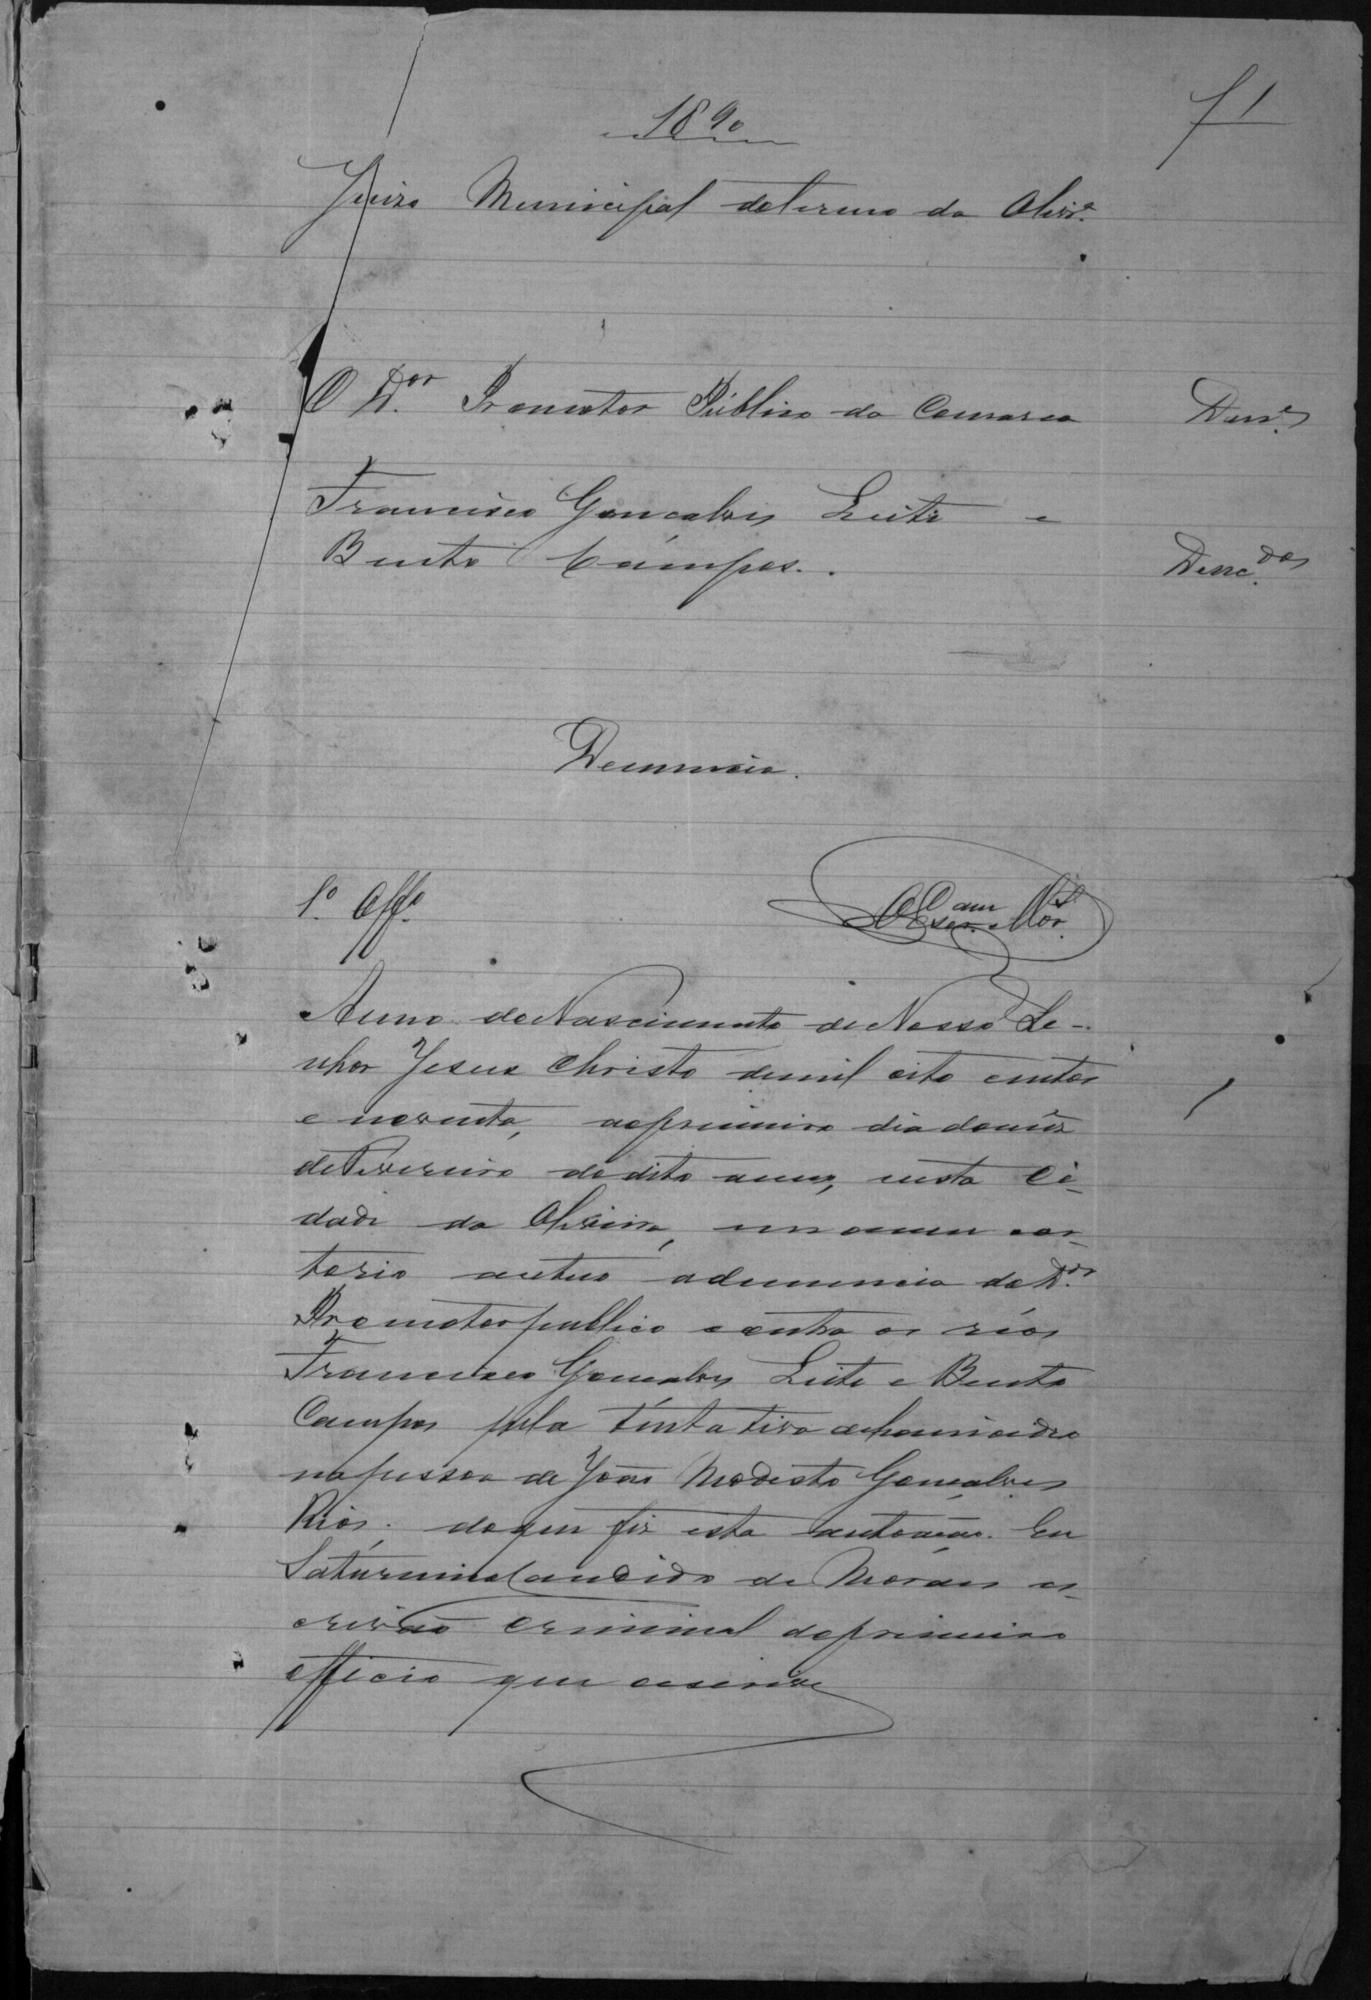 1890
f 1
Juizo Municipal do termo da Olivrª.
O Dor. Promotor Público da Comarca Denᵉ
Francisco Goncalves Leite e
Bento Campos. Dencdos
Denuncia.
1º. Offº.
O Escram Mor.
Anno do Nascimento de Nosso Se-
nhor Jesus Christo de mil oito centos
e noventa, ao primeiro dia do mês
de Fevereiro do dito anno, nesta Ci-
dade da Oliveira, em o meu car-
torio autuo a denuncia do Dor.
Promotor publico contra os réos
Francisco Goncalves Leite e Bento
Campos pela tentativa de homicidio
na pessoa de João Modesto Gonçalves
Rios. do que fiz esta autoação. Eu
Saturnino Candido de Moraes es-
crivão criminal do primeiro
officio que escrivi